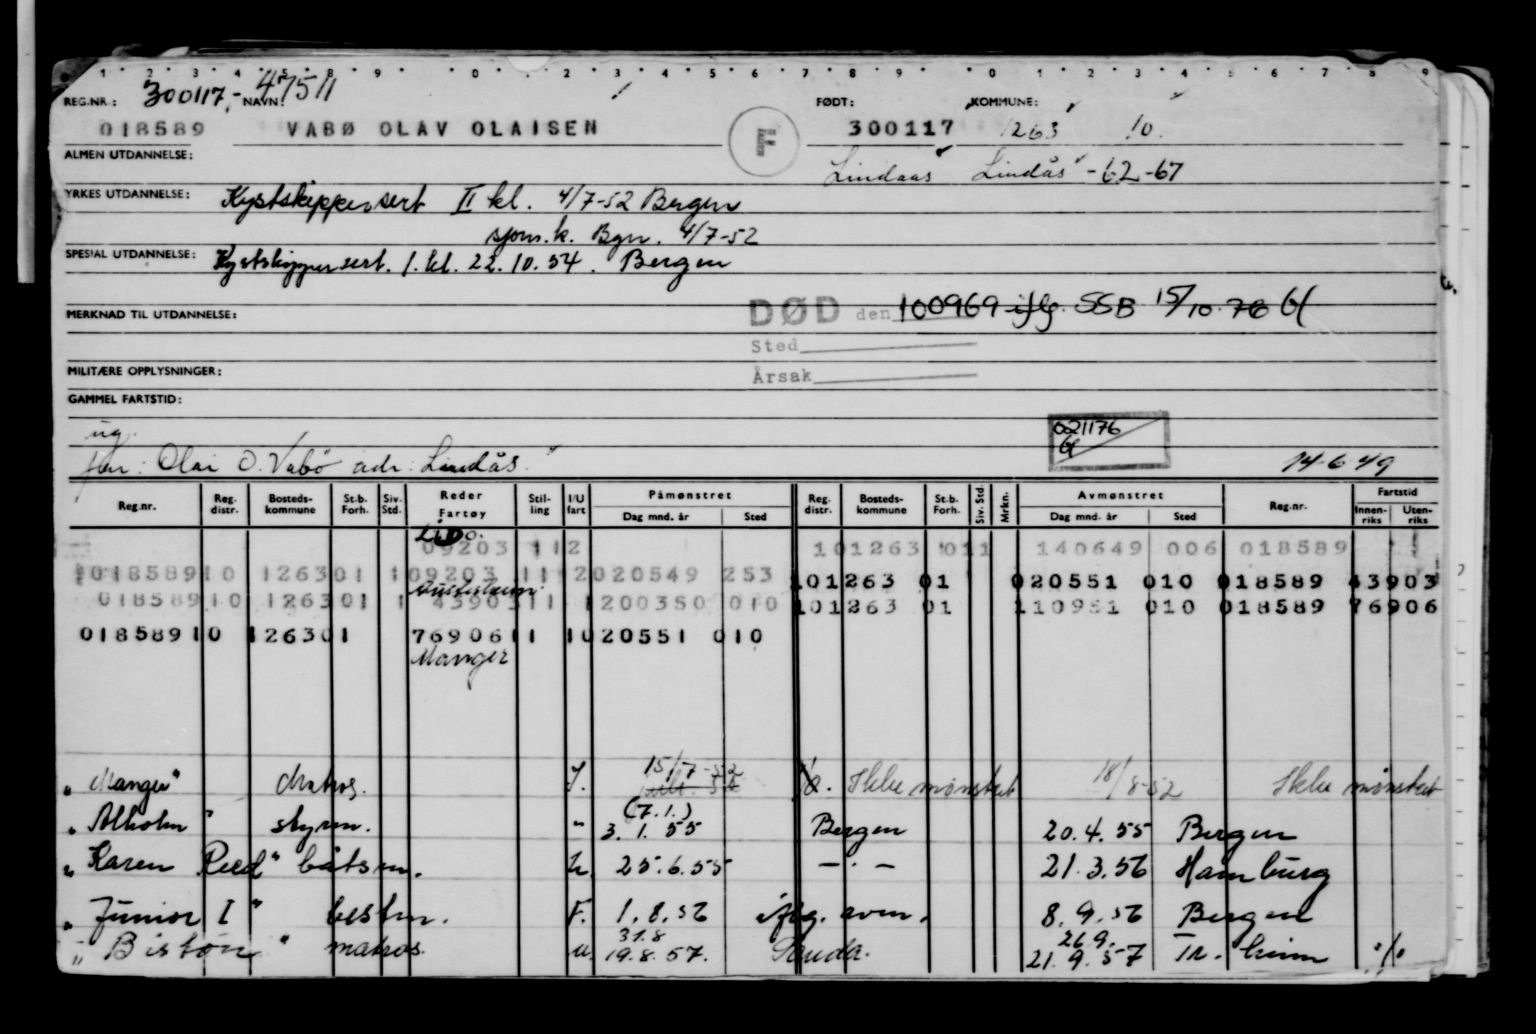 1 2 3 4 5 8 9 0 2 3 4 5 6 7 8 9 0 1 2 3 4 5 6 7 8 9
REG.NR.: 300117,- 47511 NAVN: FØDT: KOMMUNE:
018589 VABØ OLAV OLAISEN F 300117 1263 10.
ALMEN UTDANNELSE: Lindaas Lindås -62-67
YRKES UTDANNELSE: Kystskippersert II kl. 4/7-52 Bergen
sjøm.k. Bgn. 4/7-52
SPESIAL UTDANNELSE: Kystskippersert. 1.kl. 22.10.54. Bergen
MERKNAD TIL UTDANNELSE: DØD den 100969 iflg. SSB 15/10.76
Sted
MILITÆRE OPPLYSNINGER: Årsak
GAMMEL FARTSTID:
ug. 021176
far: Olai O. Vabø adr: Lindås. 14-6-49
Reg.nr. Reg. distr. Bosteds-kommune St.b. Forh. Siv. Std. Reder Fartøy Stil-ling I/U fart Påmønstret Dag mnd. år Sted Reg. distr. Bosteds-kommune St.b. Forh. Siv. Std. Mrkn. Avmønstret Dag mnd. år Sted Reg.nr. Fartstid Innen-riks Uten-riks
09203 112 101263 011 140649 006 018589
018589 10 1263 01 1 09203 11 2 020549 253 101263 01 020551 010 018589 43903
018589 10 1263 01 1 43903 11 1 200350 010 101263 01 110951 010 018589 76906
018589 10 1263 01 76906 11 1 020551 010
Manger
" Manger" Matros. I. 15/7-52 Ikke mønstret 18/8-52 Ikke mønstret
" Alholm " styrm. " (7.1.) 3.1.55 Bergen 20.4.55 Bergen
" Karen Reed" båtsm. U. 25.6.55 - " - 21.3.56 Hamburg
" Junior I " bestm. F. 1.8.56 iflg. oven. 8.9.56 Bergen
" Biston " matros. U. 31.8 19.8.57. Sauda. 26.9. 21.9.57 Tr.heim ./.